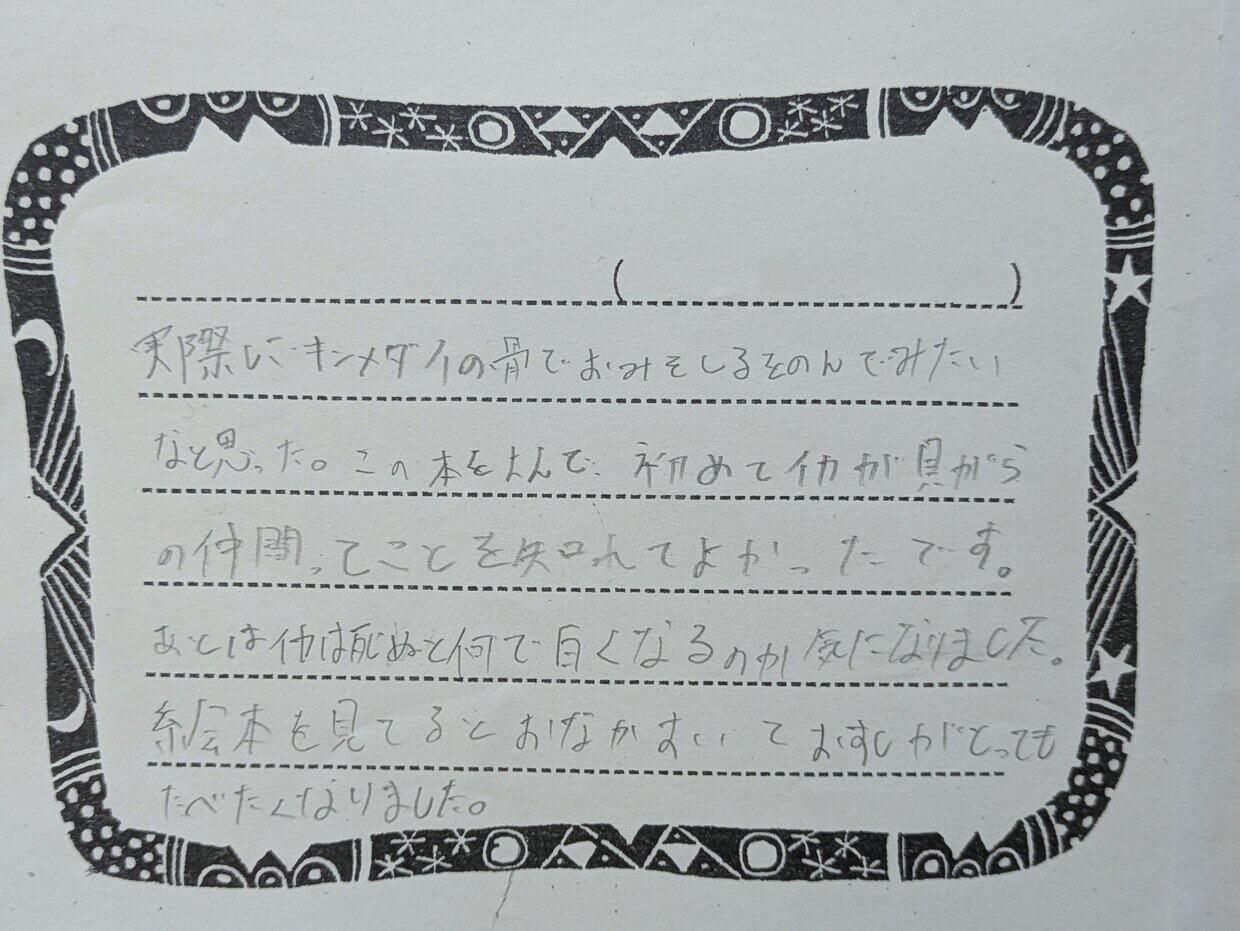 (　　　　　　　)
実際にキンメダイの骨でおみそしるをのんでみたい
なと思った。この本をよんで、初めてイカが貝から
の仲間ってことを知れてよかったです。
あとはイカは死ぬと何で白くなるのか気になりました。
絵本を見てるとおなかすいておすしがとっても
たべたくなりました。